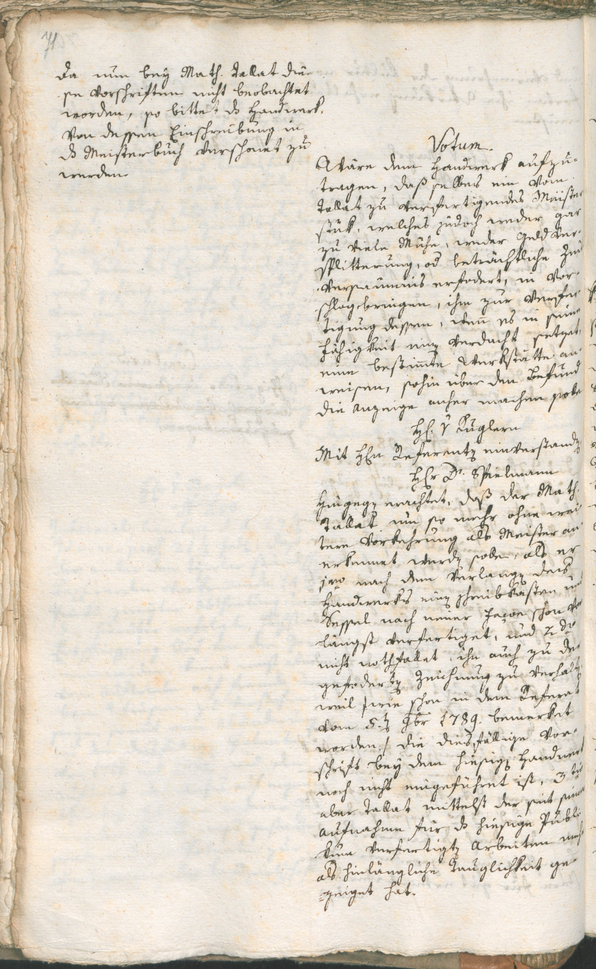 71
da nun bey Math. Tallat die-
se Vorschriften nicht beobachtet
worden, so bittet ds Handwerk.
von dessen Einschreibung in
ds Meisterbuch verschonet zu
werden.
Votum.
Wäre dem Handwerk aufzu-
tragen, daß selbes ein vom
Tallat zu verfertigendes Meister
stük, welches jedoch weder gar
zu viele Mühe, weder Geld ver-
splitterung, od beträchtliche Zeit
versäumnis erfodert, in Vor-
schlag bringen, ihm zur Verfer
tigung dessen, wenn es in seine
Fähigkeit ein Verdacht setzet,
eine bestimmte Werkstätte an
weisen, sohin über den Befund
die Anzeige anher machen solle
H. v Kuglern
Mit Hn Referenten einverstanden
Hr Dr. Spielmann
Hingegen erachtet, daß der Math
Tallat um so mehr ohne wei
tere Vorkehrung als Meister an
erkannt werden solle, als er
jen nach dem Verlangen des
Handwerks einen Schreibkasten und
Sessel nach neuer Façon schon
längst verfertiget, und
nicht nothfallet, ihn auch zu der
gefoderten Zeichnung zu verhalten
weil /: wie schon in dem Referat
vom 5. 9br 1789. bemerket
worden :/ die diesfällige Vor-
schrift bey dem hiesigen Handwerk
noch nicht eingeführet ist,
aber Tallat mittelst der seit seiner
Aufnahme für ds hiesige Publi
kum verfertigten Arbeiten
als hinlängliche Tauglichkeit ge-
zeiget hat.